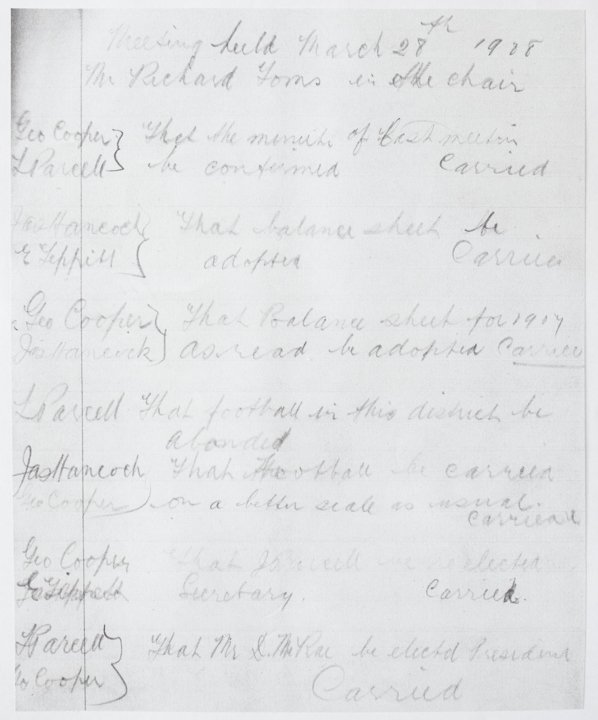 Meeting held March 28th 1928
Mr Richard Toms in the chair
Geo Cooper } That the minuits of Last meetin
L Parcell } be confirmed Carried
Jas Hancock } That balance sheet be
E Tippitt } adopted Carried
Geo Cooper } That Balance sheet for 1917
Jas Hancock } as read be adopted Carried
L Parcell That football in this district be
abonded
Jas Hancock That football be carried
Geo Cooper } on a better scale as usual.
Carried
Geo Cooper That Parcell be elected
E Tippett Secretary. Carried.
L Parcell } That Mr D. McRae be electd President
Geo Cooper } Carried